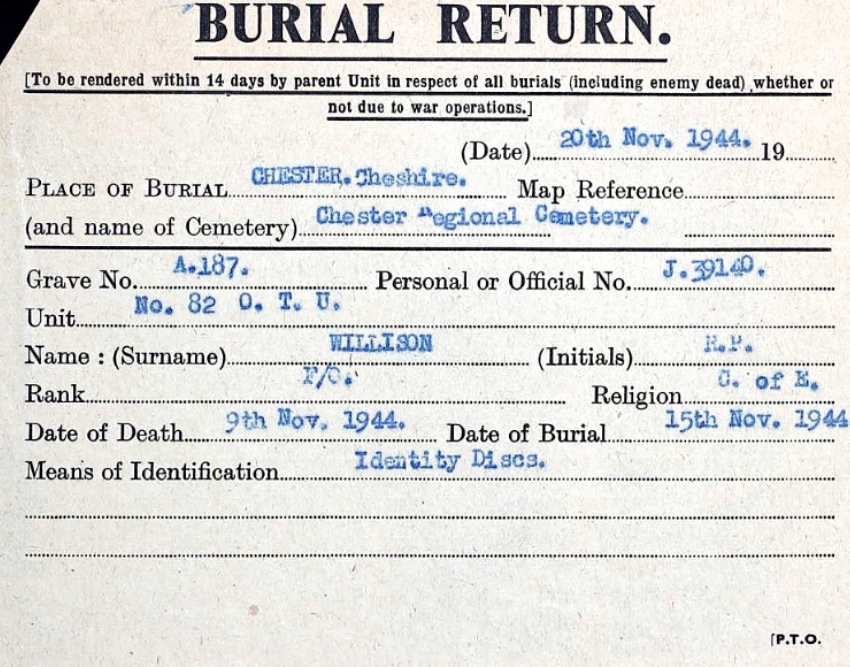 BURIAL RETURN.
[To be rendered within 14 days by parent Unit in respect of all burials (including enemy dead) whether or
not due to war operations.]
(Date) 20th Nov. 1944. 19
PLACE OF BURIAL CHESTER. Cheshire. Map Reference
(and name of Cemetery) Chester Regional Cemetery.
Grave No. A.187. Personal or Official No. J.39140.
Unit No. 82 O. T. U.
Name : (Surname) WILLISON (Initials) R.P.
Rank F/O. Religion C. of E.
Date of Death 9th Nov. 1944. Date of Burial 15th Nov. 1944
Means of Identification Identity Discs.
[P.T.O.